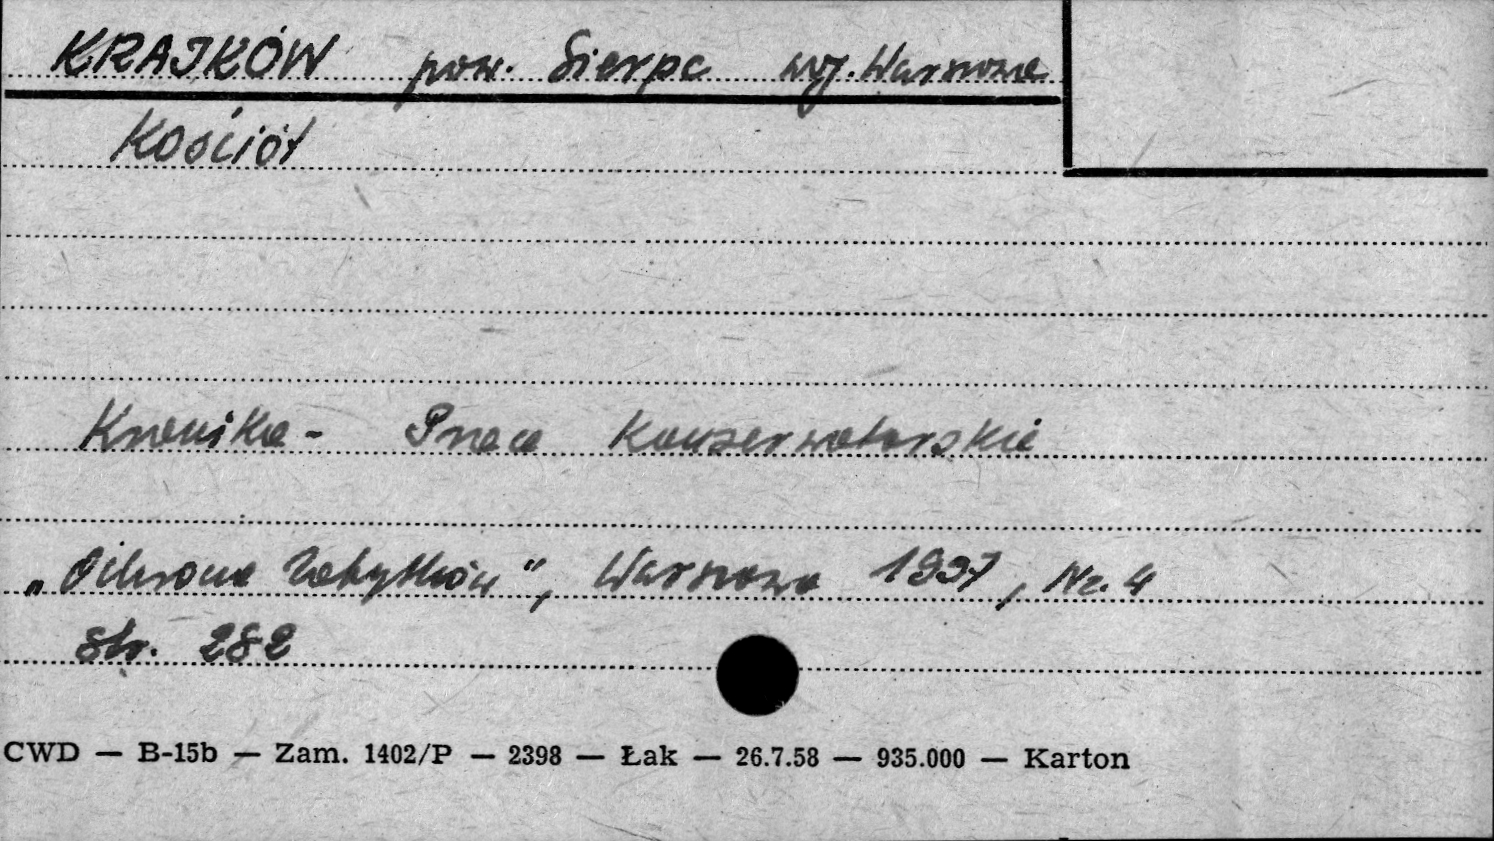 KRAJKÓW pow. Sierpc woj. Warszawa
Kościół
Kronika - Prace Konserwatorskie
„Ochrona Zabytków", Warszawa 1937, Nr. 4
str. 282
CWD — B-15b — Zam. 1402/P — 2398 — Łak — 26.7.58 — 935.000 — Karton